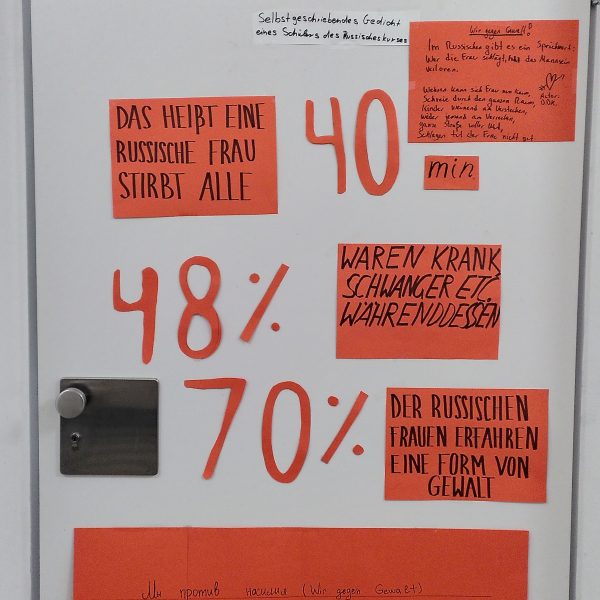 Selbstgeschriebendes Gedicht
eines Schülers des Russischeskurses
Wir gegen Gewalt!
Im Russischen gibt es ein Sprichwort:
Wer die Frau schlägt, hat das Mannsein
verloren.
Wehren kann sich Frau nur kaum,
Schreie durch den ganzen Raum,
Kinder weinend am Verstehen,
Weder jemand am
ganze Straße unter
Schlagen tut der Frau nicht gut
Autor:
D.DK.
DAS HEIßT EINE
RUSSISCHE FRAU
STIRBT ALLE
40
min
48%
WAREN KRANK
SCHWANGER ETC.
WÄHRENDDESSEN
70%
DER RUSSISCHEN
FRAUEN ERFAHREN
EINE FORM VON
GEWALT
Мы против насилия (Wir gegen Gewalt)